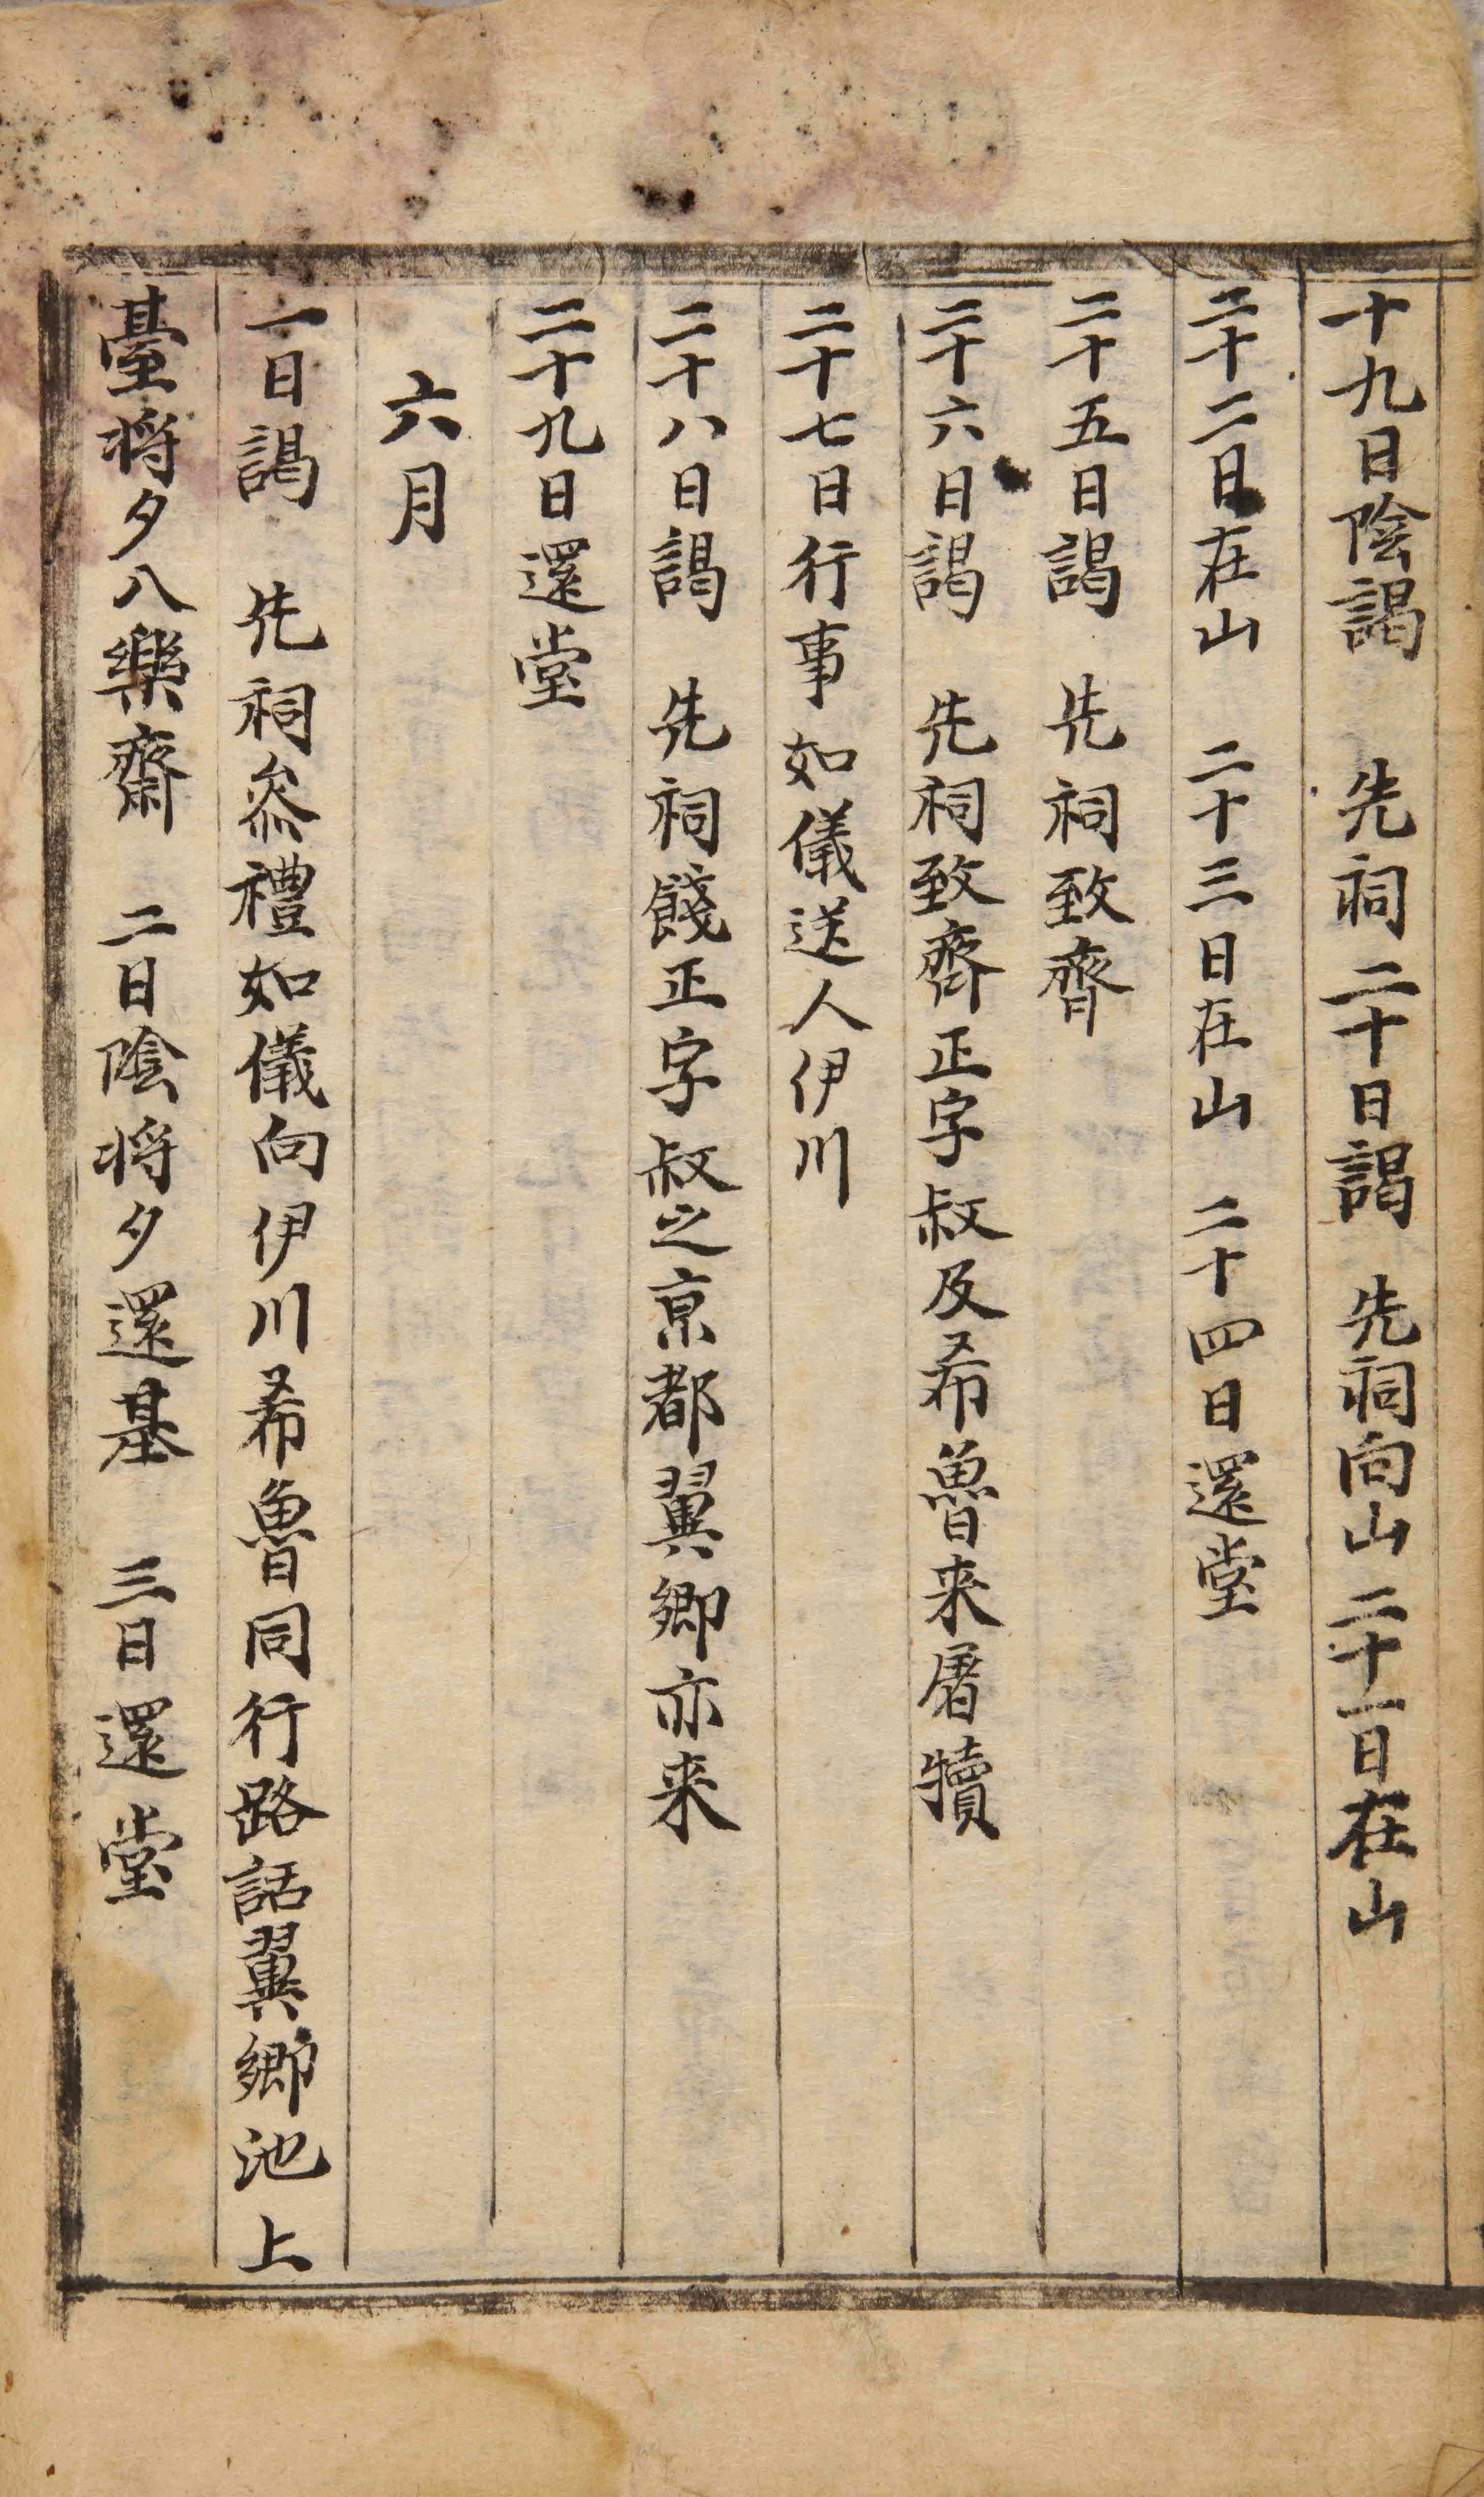 十九日陰謁　先祠二十日謁　先祠向山二十一日在山
二十二日在山　二十三日在山　二十四日還堂
二十五日謁　先祠致齊
二十六日謁　先祠致齊正字叔及希魯来屠犢
二十七日行事如儀送人伊川
二十八日謁　先祠餞正字叔之京都翼卿亦来
二十九日還堂
六月
一日謁　先祠叅禮如儀向伊川希魯同行路話翼卿池上
臺将夕八樂齋　二日陰将夕還基　三日還堂